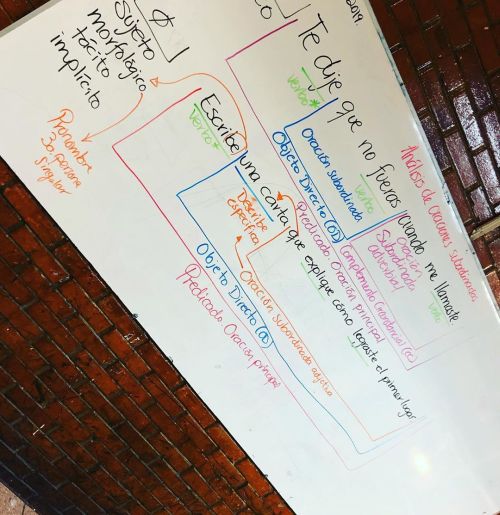 2019.
Análisis de oraciones subordinadas.
Te dije que no fueras cuando me llamaste.
verbo*
verbo
verbo
Oración subordinada
Objeto Directo (OD)
Oración
Subordinada
adverbial
Complemento Circunstancial (CC)
Predicado Oración principal
Ø
Sujeto
morfológico
tácito
implícito
Pronombre
3a persona
singular
Escribe una carta que explique cómo lograste el primer lugar
verbo*
Describe
especifica
Oración subordinada adjetiva
Objeto Directo (OD)
Predicado Oración principal